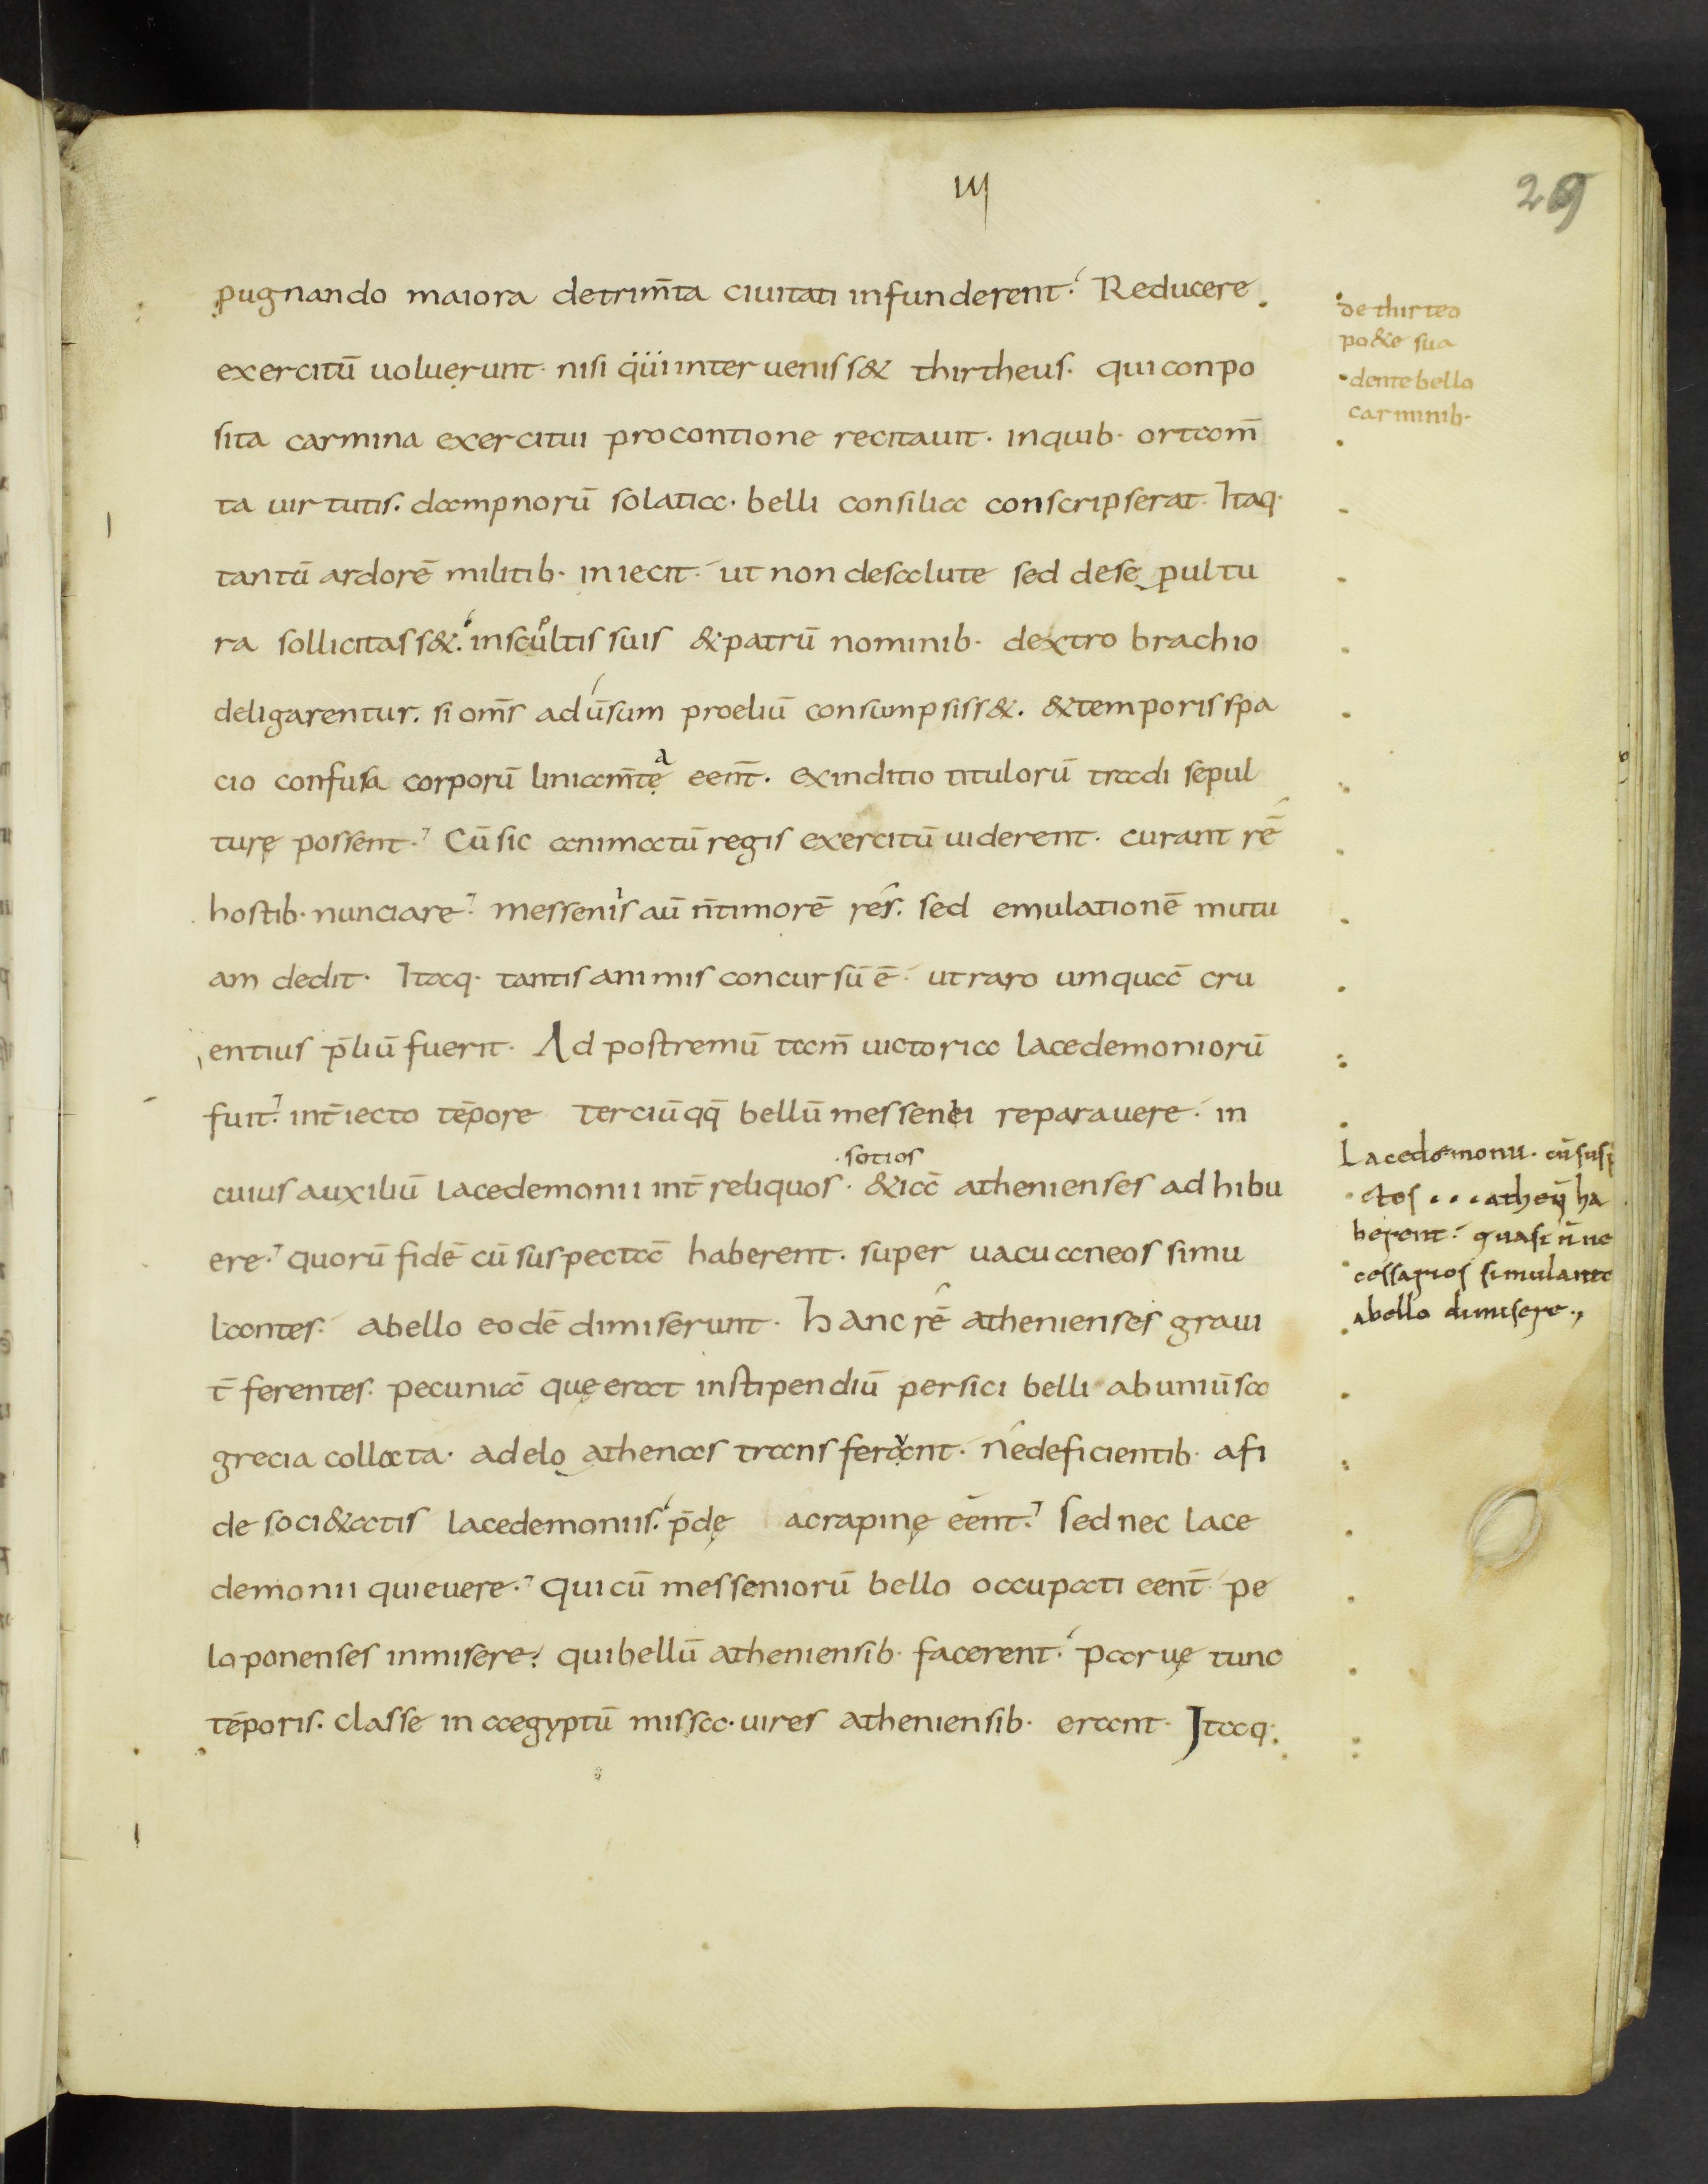 iiij
29
pugnando maiora detrim̄ta ciuitati infunderent. Reducere
exercitū uoluerunt. nisi qui interueniss& thirtheus. qui conpo
sita carmina exercitui pro contione recitauit. in quib. ortam̄
ta uirtutis. dampnorū solatia. belli consilia conscripserat. Itaq.
tantū ardorē militib. iniecit. ut non de salute sed de sepultu
ra sollicitass&. insculptis suis & patrū nominib. dextro brachio
deligarentur. si om̄s aduersum proeliū consumpsiss&. & temporis spa
cio confusa corporū liniam̄ta eēnt. ex inditio titulorū tradi sepul
turę possent. Cū sic animatū regis exercitū uiderent. curant rē
hostib. nunciare. messeniis aū n̄ timorē res. sed emulationē mutu
am dedit. Itaq. tantis animis concursū ē. ut raro umquā cru
entius p̄liū fuerit. Ad postremū tam̄ uictoria lacedemoniorū
fuit. int̄iecto tēpore terciū qq̄ bellū messenii reparauere. in
cuius auxiliū lacedemonii int̄ reliquos. socios &iā athenienses adhibu
ere. quorū fidē cū suspectā haberent. superuacuaneos simu
lantes. a bello eodē dimiserunt. Hanc rē athenienses graui
t̄ ferentes. pecuniā quę erat in stipendiū persici belli ab uniūsa
grecia collata. a delo athenas transferunt. ne deficientib. a fi
de soci&atis lacedemoniis. p̄dę ac rapinę eēnt. Sed nec lace
demonii quieuere. qui cū messeniorū bello occupati eēnt. pe
loponenses inmisere. qui bellū atheniensib. facerent. paruę tunc
tēporis. classe in aegyptū missa. uires atheniensib. erant. Itaq.
de thirteo
po&e sua
dente bello
carminib.
Lacedemonii. cū susp
ctos ... athen̄ ha
berent. quasi n̄ ne
cessarios simulante
a bello dimisere.